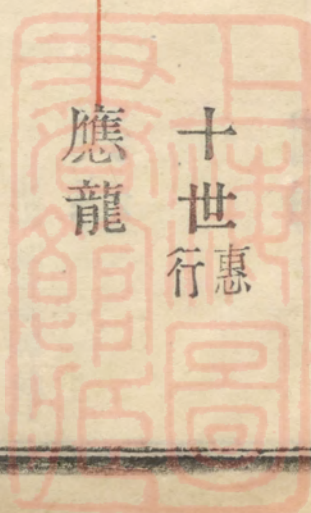 十世惠行
應龍